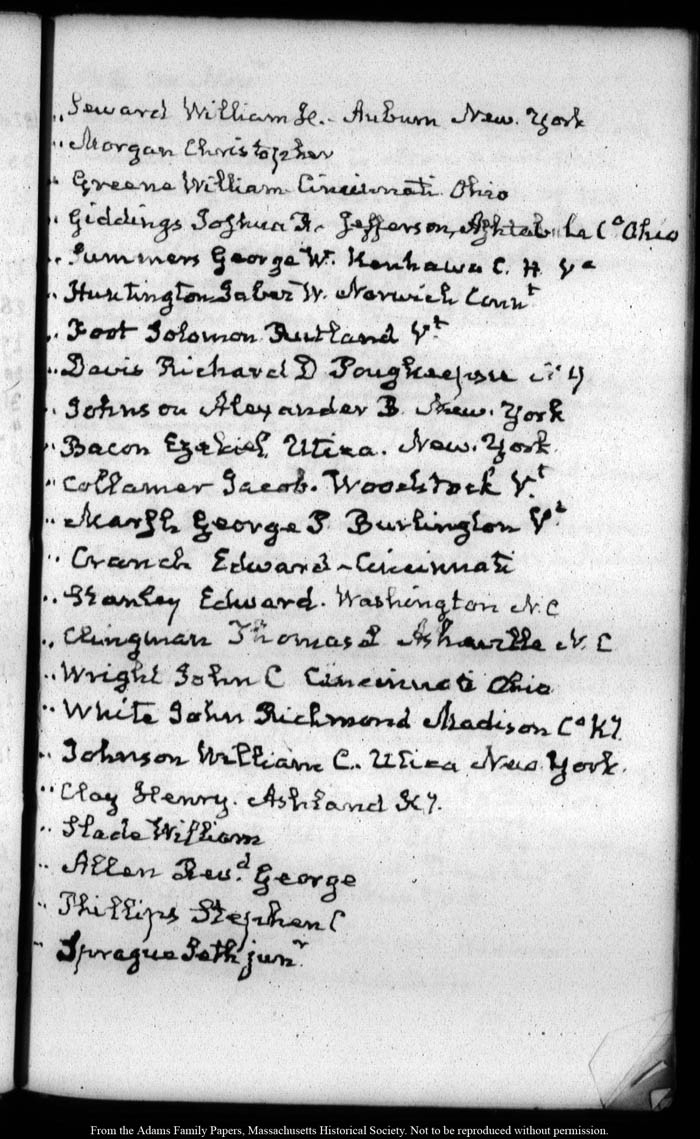 Seward William H. - Auburn New. York
Morgan Christopher
Greene William Cincinnati Ohio
Giddings Joshua R. Jefferson, Ashtabula Co Ohio
Summers George W. Kenhawa C. H. Va
Huntington Jabez W. Norwich Connt
Foot Solomon Rutland Vt
Davis Richard D Poughkeepsie N Y
Johnson Alexander B. New. York
Bacon Ezekiel, Utica. New. York.
Collamer Jacob. Woodstock Vt
Marsh George P Burlington Vt
Cranch Edward - Cincinnati
Stanley Edward. Washington N.C
Clingman Thomas L Asheville N. C
Wright John C Cincinnati Ohio
White John Richmond Madison Co Ky.
Johnson William C. Utica New York.
Clay Henry. Ashland Ky.
Slade William
Allen Revd. George
Phillips Stephen C
Sprague Seth junr.
From the Adams Family Papers, Massachusetts Historical Society. Not to be reproduced without permission.